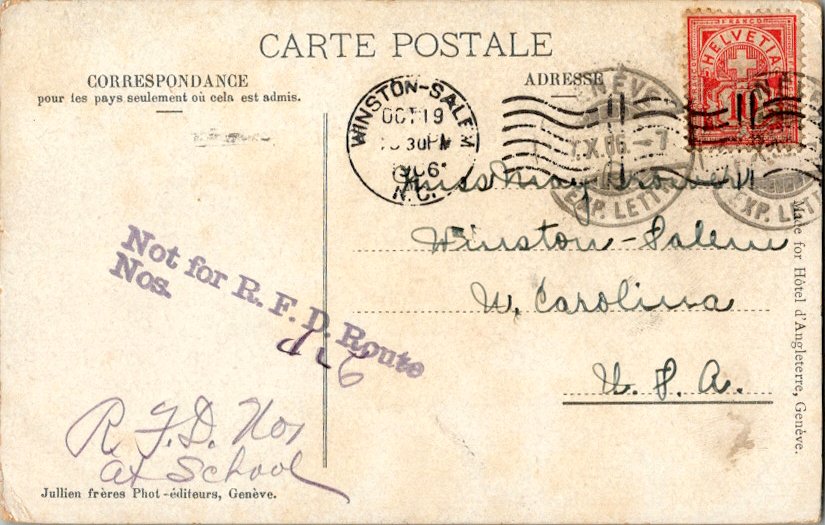 CARTE POSTALE
CORRESPONDANCE
pour les pays seulement où cela est admis.
ADRESSE
FRANCO
HELVETIA
WINSTON-SALEM
OCT 19
30 PM
1906
N.C.
GENÈVE
X.06.-7
EXP. LETTR
EXP. LETT
Miss May
Winston-Salem
N. Carolina
U. S. A.
Not for R. F. D. Route
Nos.
R. F. D. Nos
at School
Jullien frères Phot-éditeurs, Genève.
Made for Hôtel d'Angleterre, Genève.